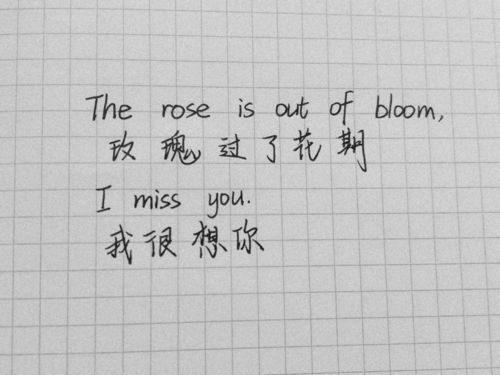 The rose is out of bloom,
玫瑰过了花期
I miss you.
我很想你